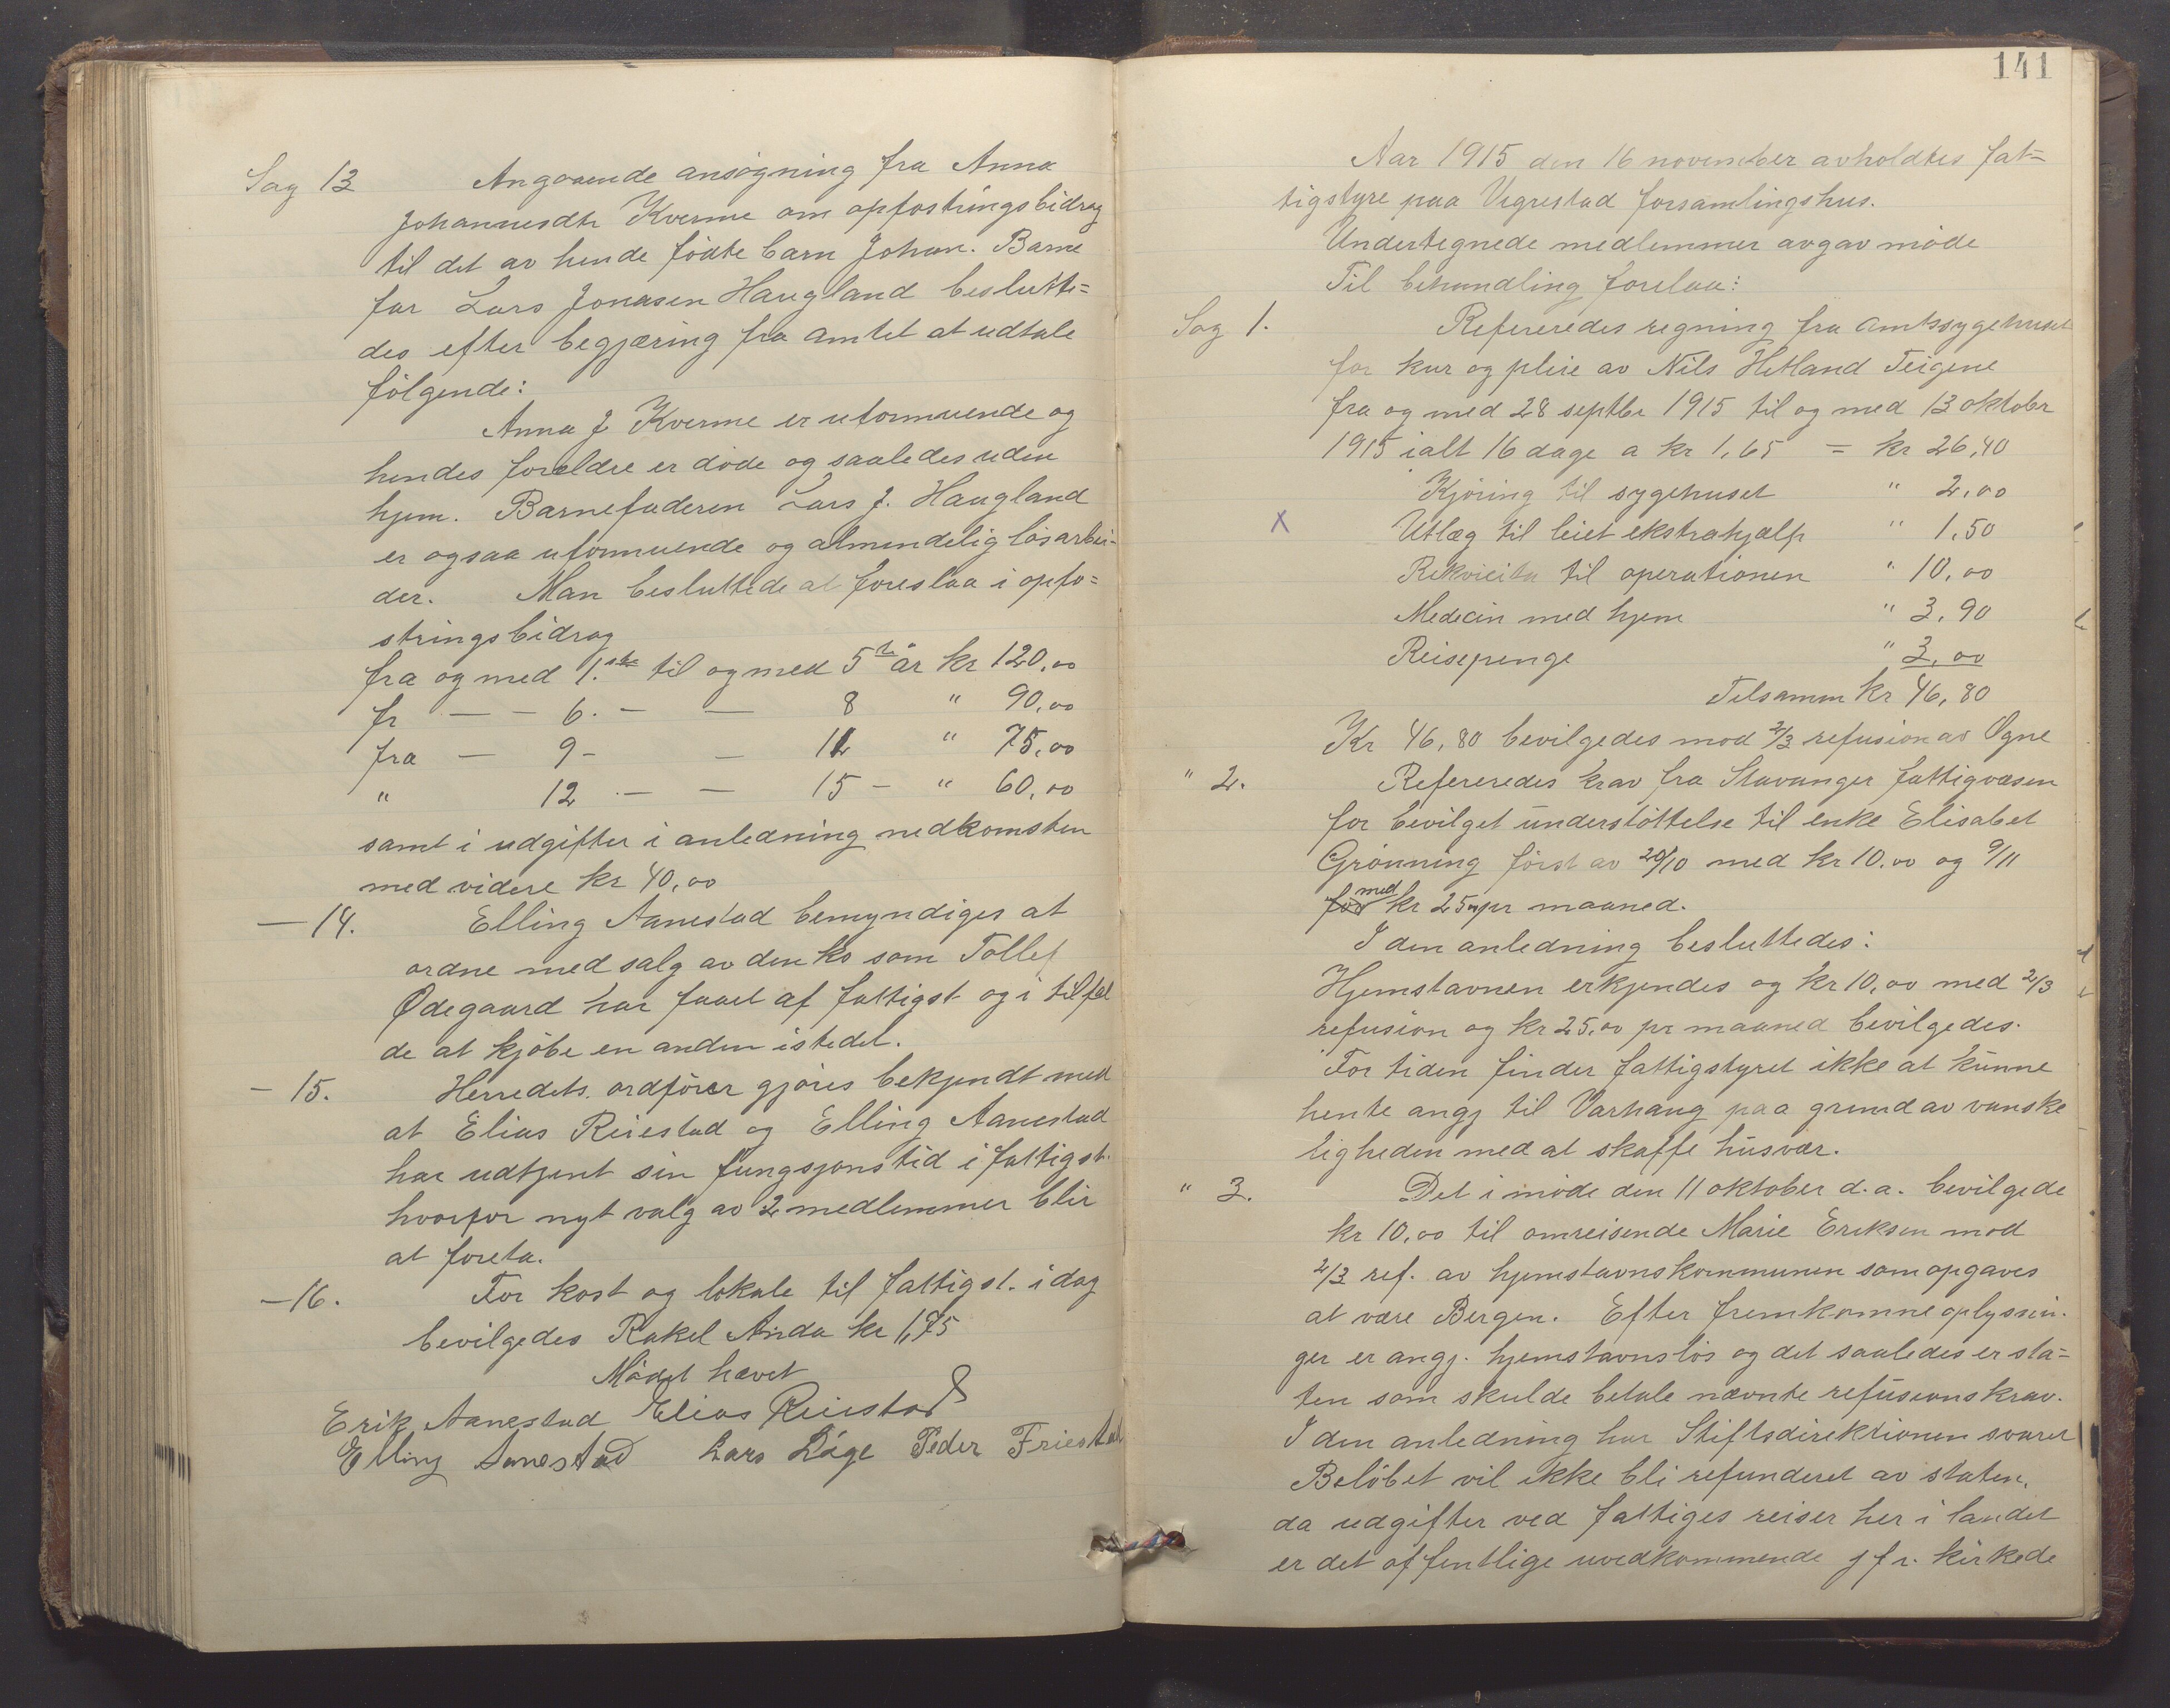 Sag 13 Angaaende ansøgning fra Anna
Johannesdtr Kverme om opfostringsbidrag
til det av hende fødte barn Johan. Barne
far Lars Jonasen Haugland beslutte=
des efter begjæring fra amtet at udtale
følgende:
Anna J Kverme er uformuende og
hendes foreldre er døde og saaledes uden
hjem. Barnefaderen Lars J. Haugland
er ogsaa uformuende og almindelig løsarbei-
der. Man besluttede at foreslaa i opfo=
stringsbidrag
fra og med 1.ste til og med 5te år kr 120,00
fr — — 6. — — 8 " 90,00
fra — 9 - — 11 " 75,00
" 12 — — 15 — " 60,00
samt i udgifter i anledning nedkomsten
med videre kr 40,00
— 14. Elling Aanestad bemyndiges at
ordne med salg av den ko som Tollef
Ødegaard har faaet af fattigst og i tilfæl
de at kjøbe en anden istedet.
— 15. Herredets ordfører gjøres bekjendt med
at Elias Reiestad og Elling Aanestad
har udtjent sin fungsjonstid i fattigst.
hvorfor nyt valg av 2 medlemmer blir
at foreta.
— 16. For kost og lokale til fattigst. idag
bevilgedes Rakel Anda kr 1,75
Mødet hævet
Erik Aanestad Elias Reiestad
Elling Aanestad Lars Låge Peder Friestad
141
Aar 1915 den 16 november avholdtes fat=
tigstyre paa Vigrestad forsamlingshus.
Undertegnede medlemmer avgav møde
Til behandling forelaa:
Sag 1. Refereredes regning fra amtssygehuset
for kur og pleie av Nils Hetland Teigene
fra og med 28 septbr 1915 til og med 13 oktober
1915 ialt 16 dage a kr 1,65 = kr 26,40
Kjøring til sygehuset " 2,00
X Utlæg til leiet ekstrahjælp " 1,50
Rekvicita til operationen " 10,00
Medecin med hjem " 3,90
Reisepenge " 3,00
Tilsamm kr 46,80
Kr 46,80 bevilgedes mod 2/3 refusion av Ogne
" 2. Refereredes krav fra Stavanger fattigvæsen
for bevilget understøttelse til enke Elisabet
Grønning først av 20/10 med kr 10.00 og 9/11
for med kr 25 pr maaned.
I den anledning besluttedes:
Hjemstavnen erkjendes og kr 10,00 med 2/3
refusion og kr 25.00 pr maaned bevilgedes.
For tiden finder fattigstyret ikke at kunne
hente angj til Varhaug paa grund av vanske
ligheden med at skaffe husvær.
" 3. Det i møde den 11 oktober d.a. bevilgede
kr 10,00 til omreisende Marie Eriksen mod
2/3 ref. av hjemstavnskommunen som opgaves
at være Bergen. Efter fremkomne oplysnin-
ger er angj. hjemstavnsløs og det saaledes er sta=
ten som skulde betale nævnte refusionskrav.
I den anledning har Stiftsdirektionen svaret
Beløbet vil ikke bli refunderet av staten,
da udgifter ved fattiges reiser her i landet
er det offentlige uvedkommende jfr. kirkede